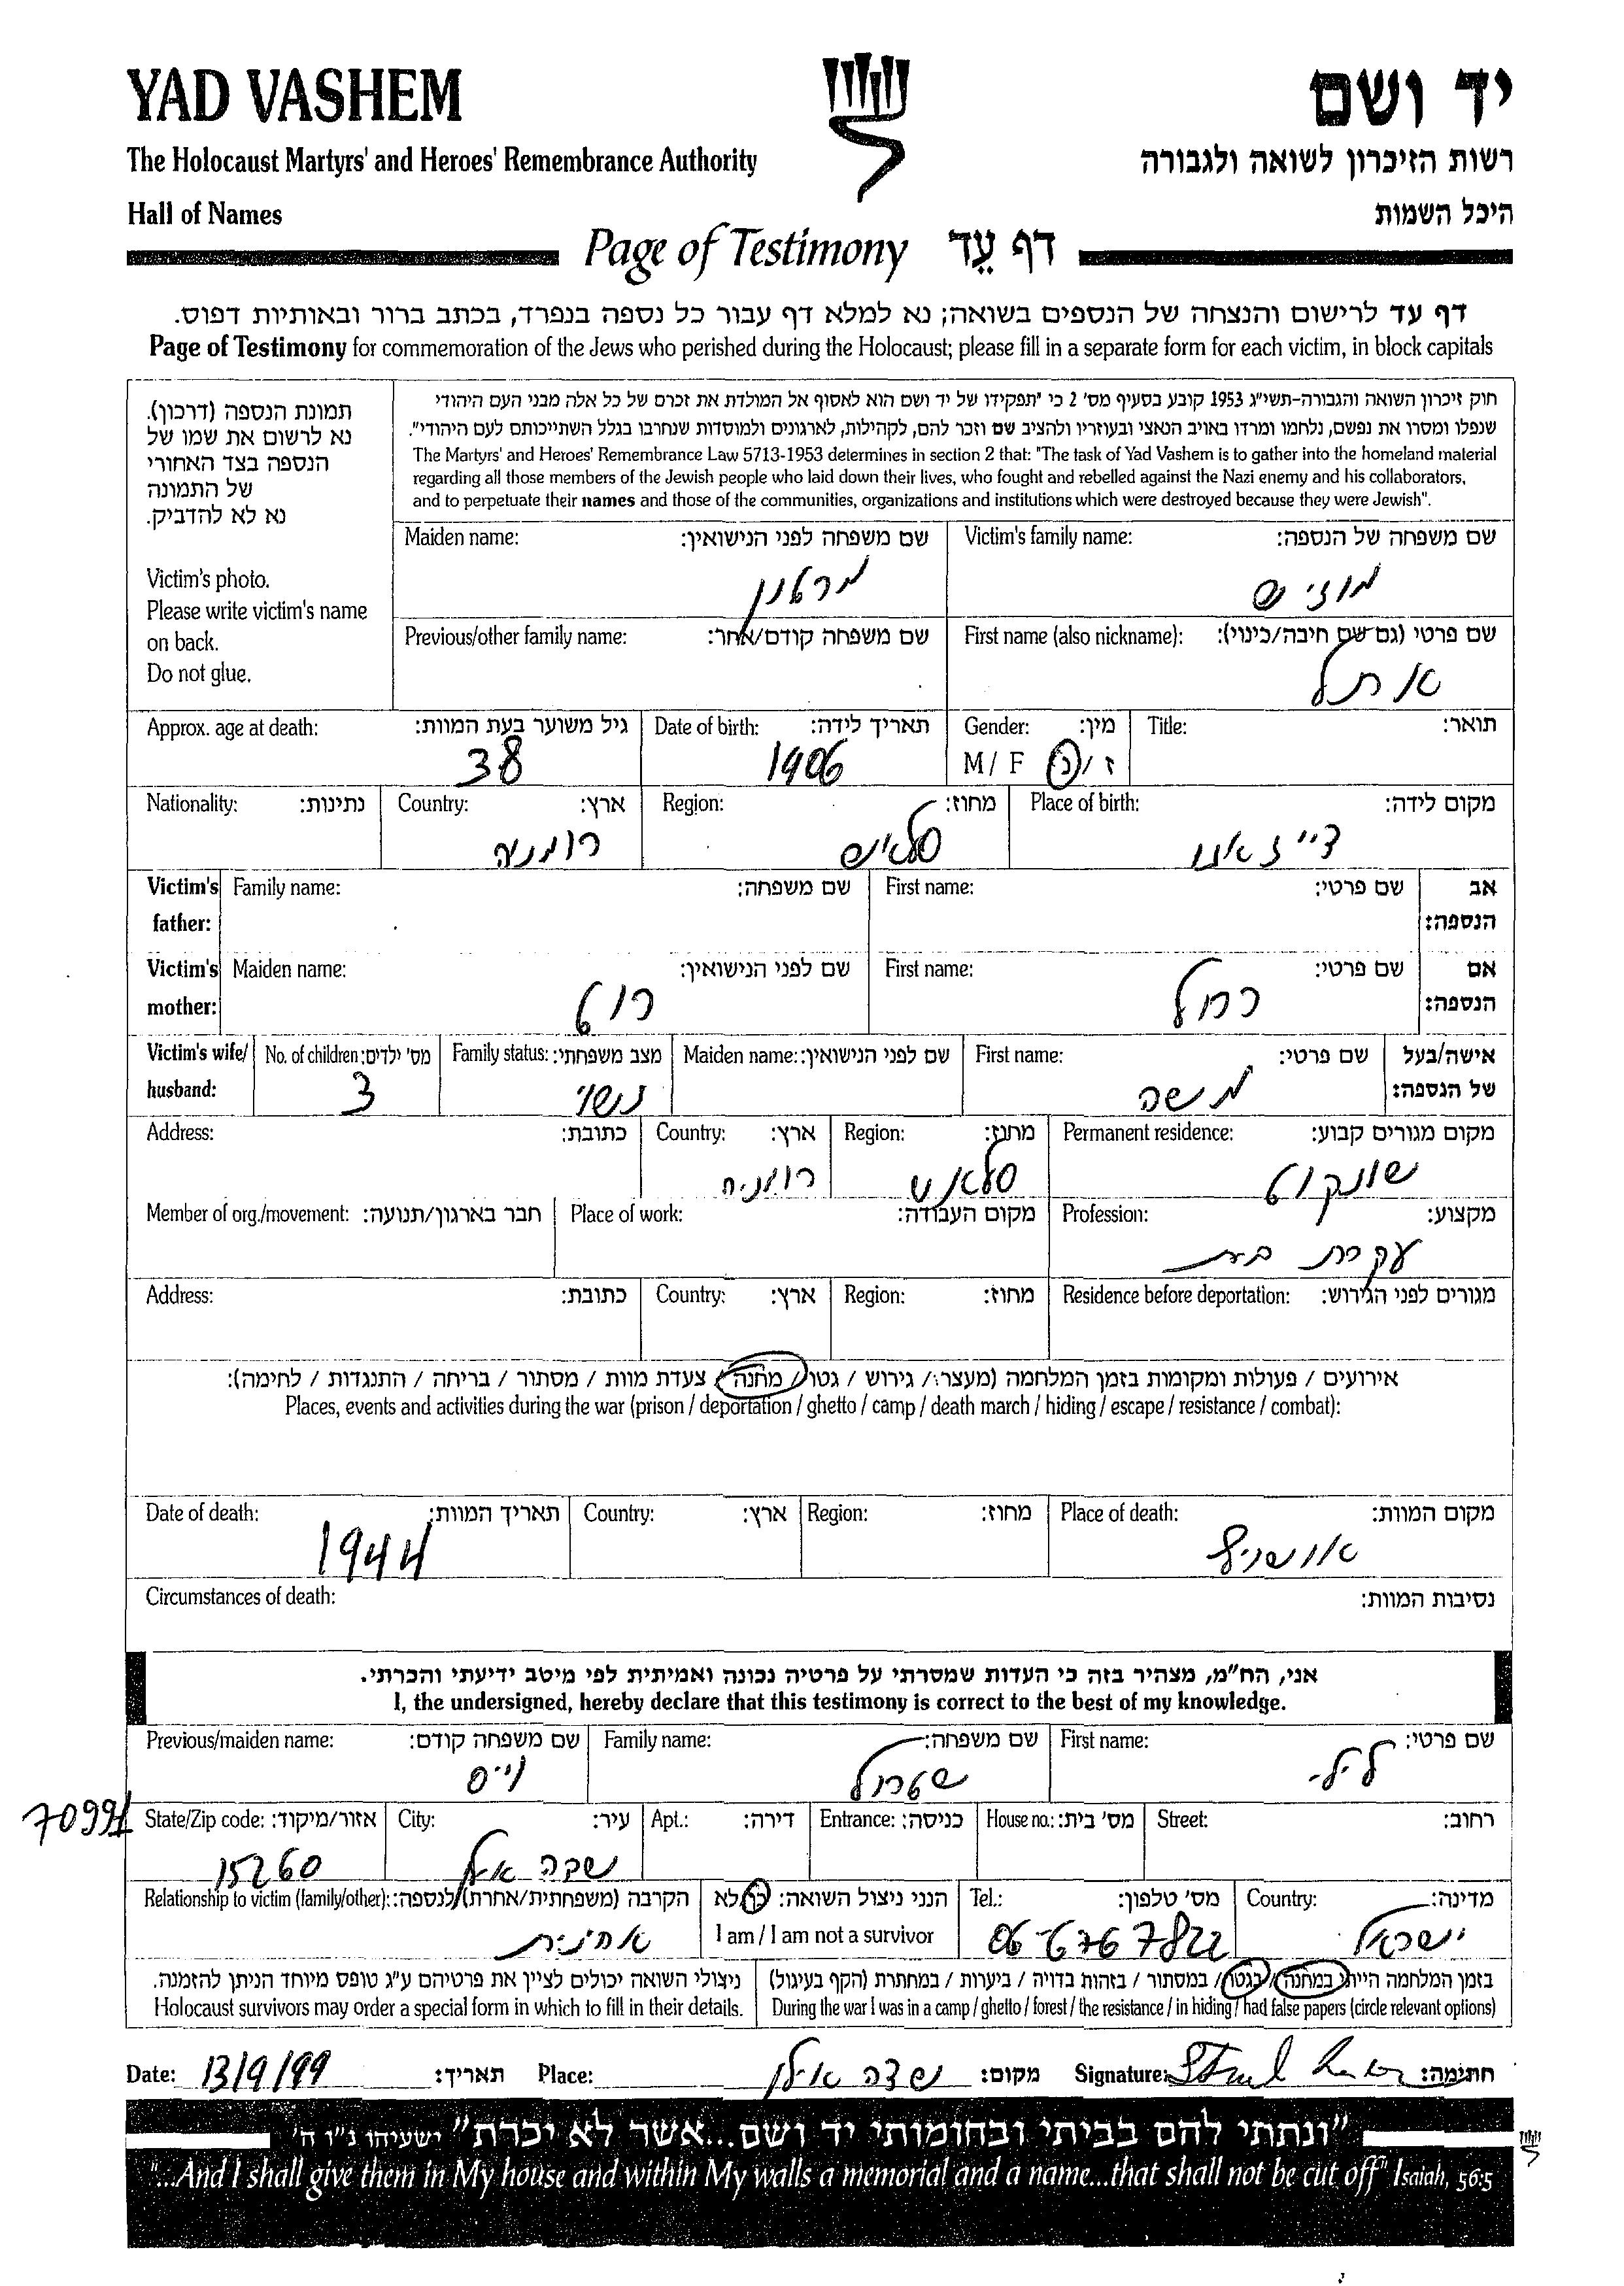 YAD VASHEM
יד ושם
The Holocaust Martyrs' and Heroes' Remembrance Authority
רשות הזיכרון לשואה ולגבורה
Hall of Names
היכל השמות
Page of Testimony דף עֵד
דף עד לרישום והנצחה של הנספים בשואה; נא למלא דף עבור כל נספה בנפרד, בכתב ברור ובאותיות דפוס.
Page of Testimony for commemoration of the Jews who perished during the Holocaust; please fill in a separate form for each victim, in block capitals
תמונת הנספה (דרכון).
נא לרשום את שמו של
הנספה בצד האחורי
של התמונה
נא לא להדביק.
Victim's photo.
Please write victim's name
on back.
Do not glue.
חוק זיכרון השואה והגבורה-תשי"ג 1953 קובע בסעיף מס' 2 כי "תפקידו של יד ושם הוא לאסוף אל המולדת את זכרם של כל אלה מבני העם היהודי
שנפלו ומסרו את נפשם, נלחמו ומרדו באויב הנאצי ובעוזריו ולהציב שם וזכר להם, לקהילות, לארגונים ולמוסדות שנחרבו בגלל השתייכותם לעם היהודי".
The Martyrs' and Heroes' Remembrance Law 5713-1953 determines in section 2 that: "The task of Yad Vashem is to gather into the homeland material
regarding all those members of the Jewish people who laid down their lives, who fought and rebelled against the Nazi enemy and his collaborators,
and to perpetuate their names and those of the communities, organizations and institutions which were destroyed because they were Jewish".
Victim's family name: שם משפחה של הנספה:
מוזיש
Maiden name: שם משפחה לפני הנישואין:
מרטון
First name (also nickname): שם פרטי (גם שם חיבה/כינוי):
אתל
Previous/other family name: שם משפחה קודם/אחר:
Title: תואר:
Gender: מין:
M / F ז / נ
Date of birth: תאריך לידה:
1906
Approx. age at death: גיל משוער בעת המוות:
38
Place of birth: מקום לידה:
Region: מחוז:
Country: ארץ:
רומניה
Nationality: נתינות:
Victim's father: אב הנספה:
First name: שם פרטי:
Family name: שם משפחה:
Victim's mother: אם הנספה:
First name: שם פרטי:
רחל
Maiden name: שם לפני הנישואין:
רוט
Victim's wife/husband: אישה/בעל של הנספה:
First name: שם פרטי:
משה
Maiden name: שם לפני הנישואין:
Family status: מצב משפחתי:
נשוי
No. of children: מס' ילדים:
3
Permanent residence: מקום מגורים קבוע:
שונקוט
Region: מחוז:
Country: ארץ:
רומניה
Address: כתובת:
Profession: מקצוע:
עקרת בית
Place of work: מקום העבודה:
Member of org./movement: חבר בארגון/תנועה:
Residence before deportation: מגורים לפני הגירוש:
Region: מחוז:
Country: ארץ:
Address: כתובת:
אירועים / פעולות ומקומות בזמן המלחמה (מעצר / גירוש / גטו / מחנה / צעדת מוות / מסתור / בריחה / התנגדות / לחימה):
Places, events and activities during the war (prison / deportation / ghetto / camp / death march / hiding / escape / resistance / combat):
Place of death: מקום המוות:
אושוויץ
Region: מחוז:
Country: ארץ:
Date of death: תאריך המוות:
1944
Circumstances of death: נסיבות המוות:
אני, הח"מ, מצהיר בזה כי העדות שמסרתי על פרטיה נכונה ואמיתית לפי מיטב ידיעתי והכרתי.
I, the undersigned, hereby declare that this testimony is correct to the best of my knowledge.
First name: שם פרטי:
לילי
Family name: שם משפחה:
שטרול
Previous/maiden name: שם משפחה קודם:
וייס
Street: רחוב:
House no.: מס' בית:
Entrance: כניסה:
Apt.: דירה:
City: עיר:
שדה אילן
State/Zip code: אזור/מיקוד:
15260
70991
Country: מדינה:
ישראל
Tel.: מס' טלפון:
06-6767822
הנני ניצול השואה: כן/לא
I am / I am not a survivor
Relationship to victim (family/other): הקרבה (משפחתית/אחרת) לנספה:
אחינית
בזמן המלחמה הייתי במחנה / בגטו / במסתור / בזהות בדויה / ביערות / במחתרת (הקף בעיגול)
During the war I was in a camp / ghetto / forest / the resistance / in hiding / had false papers (circle relevant options)
ניצולי השואה יכולים לציין את פרטיהם ע"ג טופס מיוחד הניתן להזמנה.
Holocaust survivors may order a special form in which to fill in their details.
Date: 13/9/99 תאריך: Place: שדה אילן מקום: Signature: חתימה:
"ונתתי להם בביתי ובחומותי יד ושם...אשר לא יכרת" ישעיהו נ"ו ה'
"...And I shall give them in My house and within My walls a memorial and a name...that shall not be cut off" Isaiah, 56:5